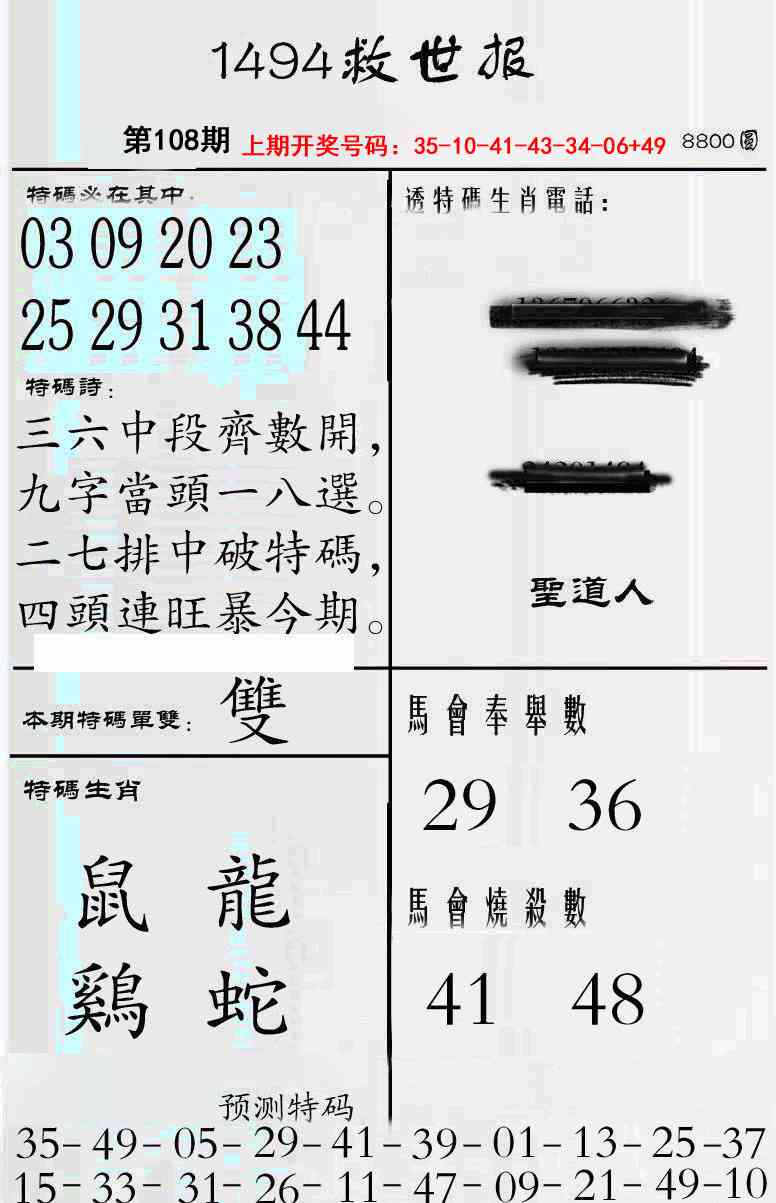 1494救世报
第108期 上期开奖号码：35-10-41-43-34-06+49 8800圓
特碼必在其中：
03 09 20 23
25 29 31 38 44
特碼詩：
三六中段齊數開，
九字當頭一八選。
二七排中破特碼，
四頭連旺暴今期。
本期特碼單雙：雙
特碼生肖
鼠 龍
鷄 蛇
透特碼生肖電話：
聖道人
馬會奉舉數
29 36
馬會燒殺數
41 48
预测特码
35-49-05-29-41-39-01-13-25-37
15-33-31-26-11-47-09-21-49-10